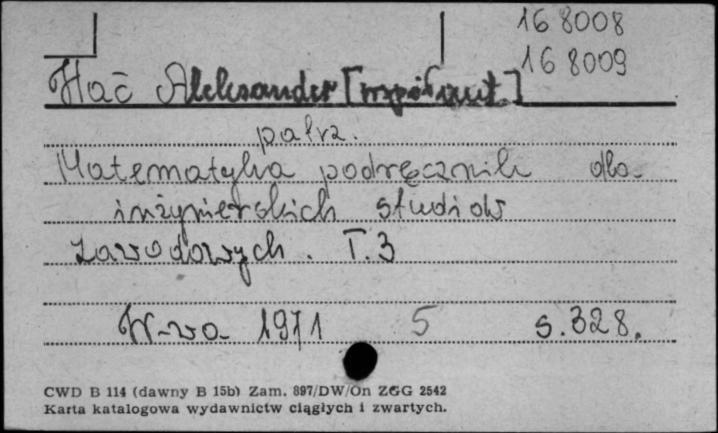 168008
168009
Hać Aleksander [współaut.]
patrz.
Matematyka podręcznik dla
inżynierskich studiów
zawodowych. T.3
W-wa 1971 5 s. 328.
CWD B 114 (dawny B 15b) Zam. 897/DW/On ZGG 2542
Karta katalogowa wydawnictw ciągłych i zwartych.